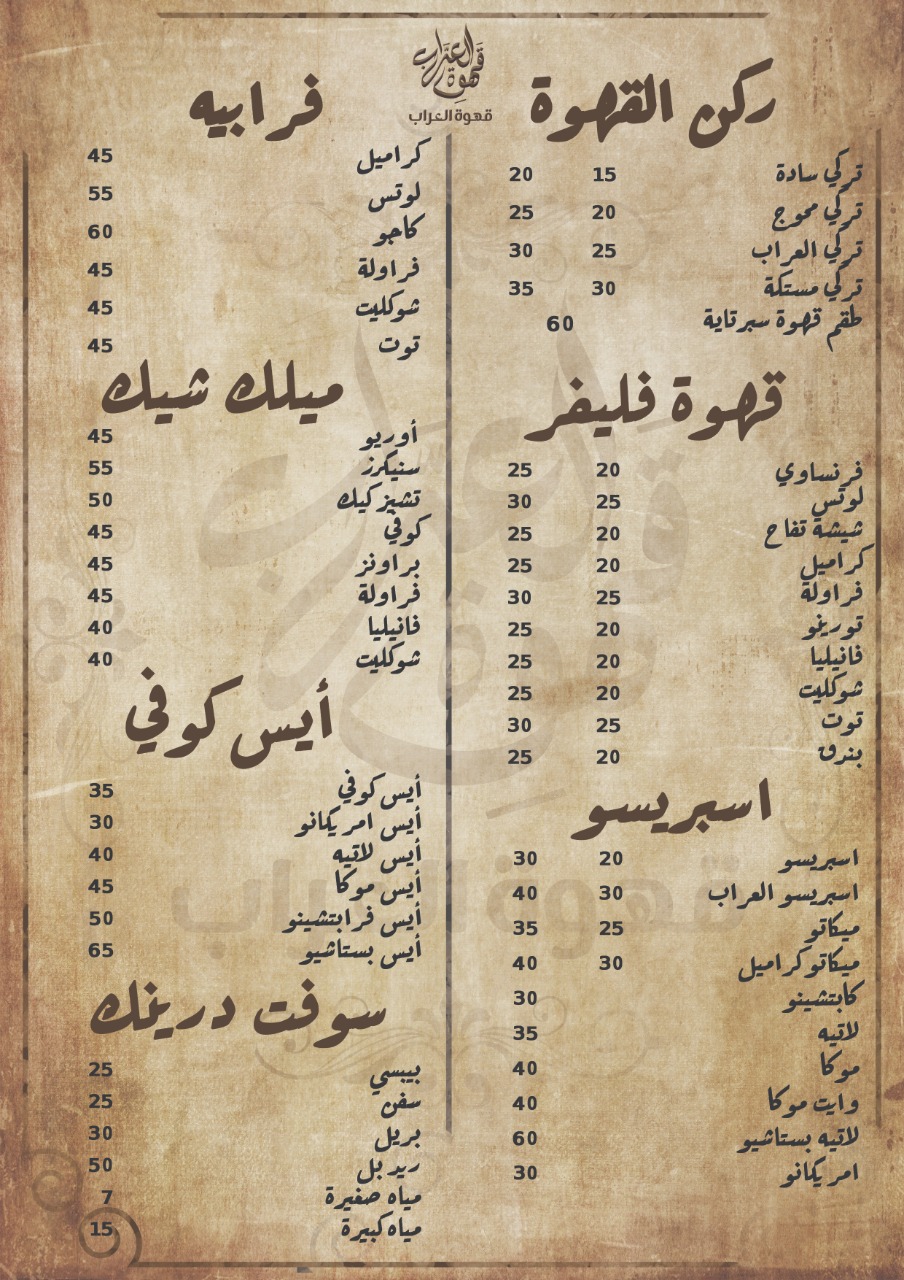 قهوة العراب
قهوة العراب
ركن القهوة
تركي سادة 15 20
تركي محوج 20 25
تركي العراب 25 30
تركي مستكة 30 35
طقم قهوة سبرتاية 60
قهوة فليفر
فرنساوي 20 25
لوتس 25 30
شيشة تفاح 20 25
كراميل 20 25
فراولة 25 30
تورينو 20 25
فانيليا 20 25
شوكليت 20 25
توت 25 30
بندق 20 25
اسبريسو
اسبريسو 20 30
اسبريسو العراب 30 40
ميكاتو 25 35
ميكاتو كراميل 30 40
كابتشينو 30
لاتيه 35
موكا 40
وايت موكا 40
لاتيه بستاشيو 60
امريكانو 30
فرابيه
كراميل 45
لوتس 55
كاجو 60
فراولة 45
شوكليت 45
توت 45
ميلك شيك
أوريو 45
سنيكرز 55
تشيز كيك 50
كوفي 45
براونز 45
فراولة 45
فانيليا 40
شوكليت 40
أيس كوفي
أيس كوفي 35
أيس امريكانو 30
أيس لاتيه 40
أيس موكا 45
أيس فرابتشينو 50
أيس بستاشيو 65
سوفت درينك
بيبسي 25
سفن 25
بريل 30
ريد بل 50
مياه صغيرة 7
مياه كبيرة 15
قهوة العراب
قهوة العراب